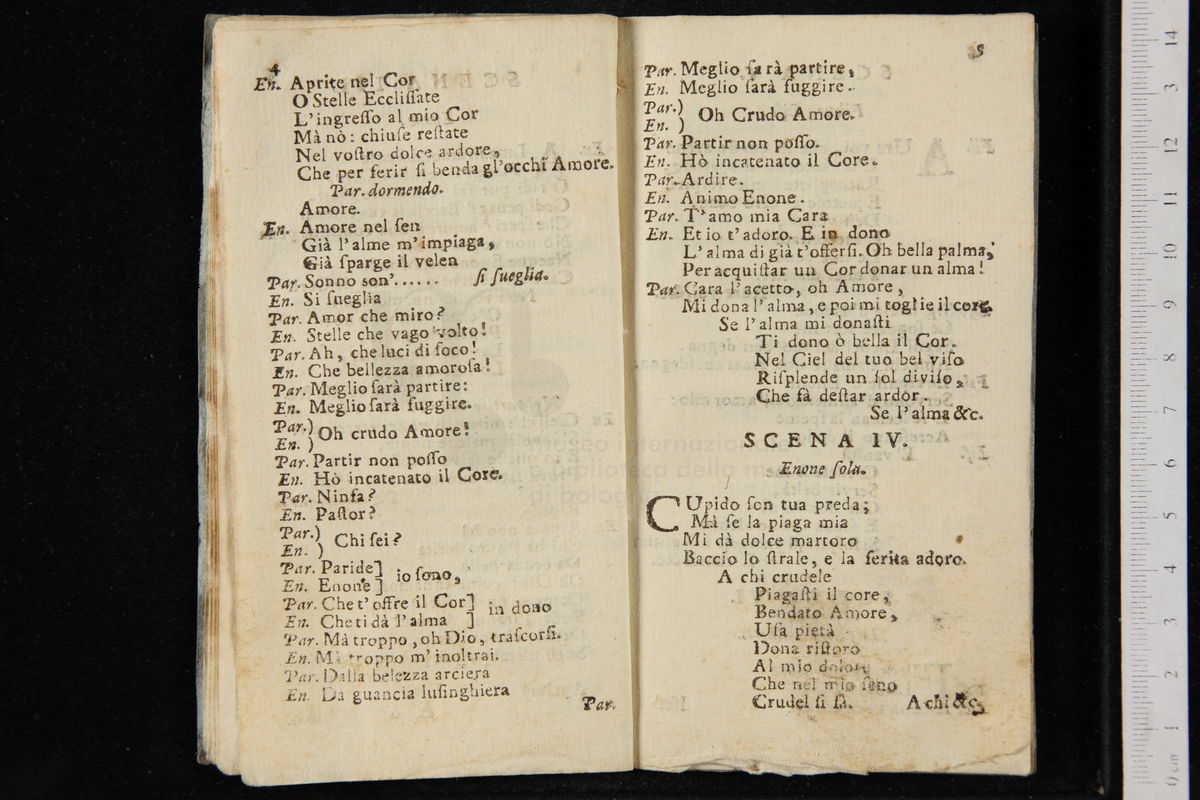 4
En. Aprite nel Cor
O Stelle Eccliſſate
L'ingreſſo al mio Cor
Mà nò: chiuſe reſtate
Nel voſtro dolce ardore,
Che per ferir ſi benda gl'occhi Amore.
Par. dormendo.
Amore.
En. Amore nel ſen
Già l'alme m'impiaga,
Già ſparge il velen
Par. Sonno son'...... ſi ſueglia.
En. Si ſueglia
Par. Amor che miro?
En. Stelle che vago volto!
Par. Ah, che luci di foco!
En. Che bellezza amoroſa!
Par. Meglio ſarà partire:
En. Meglio ſarà fuggire.
Par.)
En. ) Oh crudo Amore!
Par. Partir non poſſo
En. Hò incatenato il Core.
Par. Ninfa?
En. Paſtor?
Par.)
En. ) Chi ſei?
Par. Paride]
En. Enone ] io ſono,
Par. Che t'offre il Cor]
En. Che ti dà l'alma ] in dono
Par. Mà troppo, oh Dio, traſcorſi.
En. Mà troppo m'inoltrai.
Par. Dalla belezza arciera
En. Da guancia luſinghiera
Par.
5
Par. Meglio ſarà partire,
En. Meglio ſarà fuggire.
Par.)
En. ) Oh Crudo Amore.
Par. Partir non poſſo.
En. Hò incatenato il Core.
Par. Ardire.
En. Animo Enone.
Par. T'amo mia Cara
En. Et io t'adoro. E in dono
L'alma di già t'offerſi. Oh bella palma,
Per acquiſtar un Cor donar un alma!
Par. Cara l'acetto, oh Amore,
Mi dona l'alma, e poi mi toglie il core.
Se l'alma mi donaſti
Ti dono ò bella il Cor.
Nel Ciel del tuo bel viſo
Riſplende un ſol diviſo,
Che fà deſtar ardor.
Se l'alma &c.
SCENA IV.
Enone ſola.
CUpido ſon tua preda;
Mà ſe la piaga mia
Mi dà dolce martoro
Baccio lo ſtrale, e la ferita adoro.
A chi crudele
Piagaſti il core,
Bendato Amore,
Uſa pietà
Dona riſtoro
Al mio dolore
Che nel mio ſeno
Crudel ſi fà. A chi &c.
museo internazionale
e biblioteca della musica
di bologna
14
13
12
11
10
9
8
7
6
5
4
3
2
1
0 cm